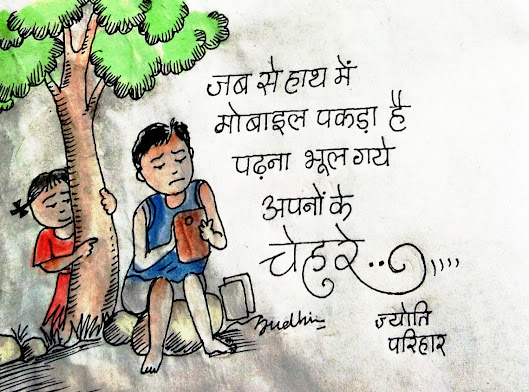 जब से हाथ में
मोबाइल पकड़ा है
पढ़ना भूल गये
अपनों के
चेहरे..
ज्योति
परिहार